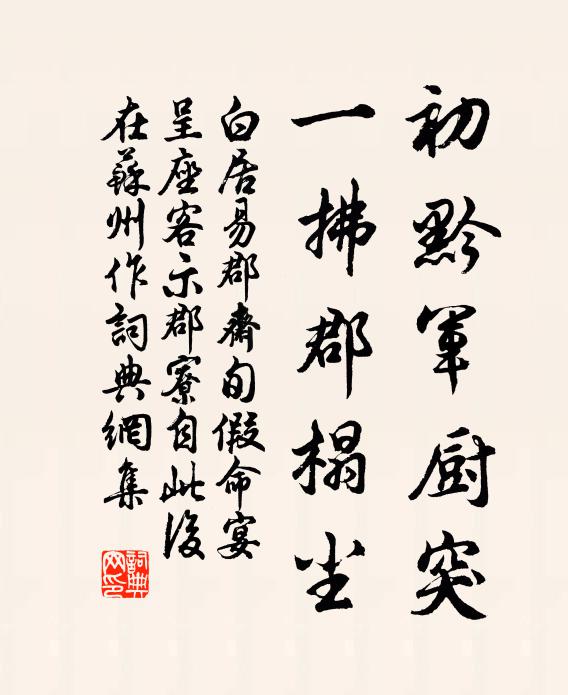 初黔軍厨突
一拂郡榻尘
白居易郡齋旬假命宴
呈座客示郡寮自此後
在蘇州作詞典網集
詞典
网印